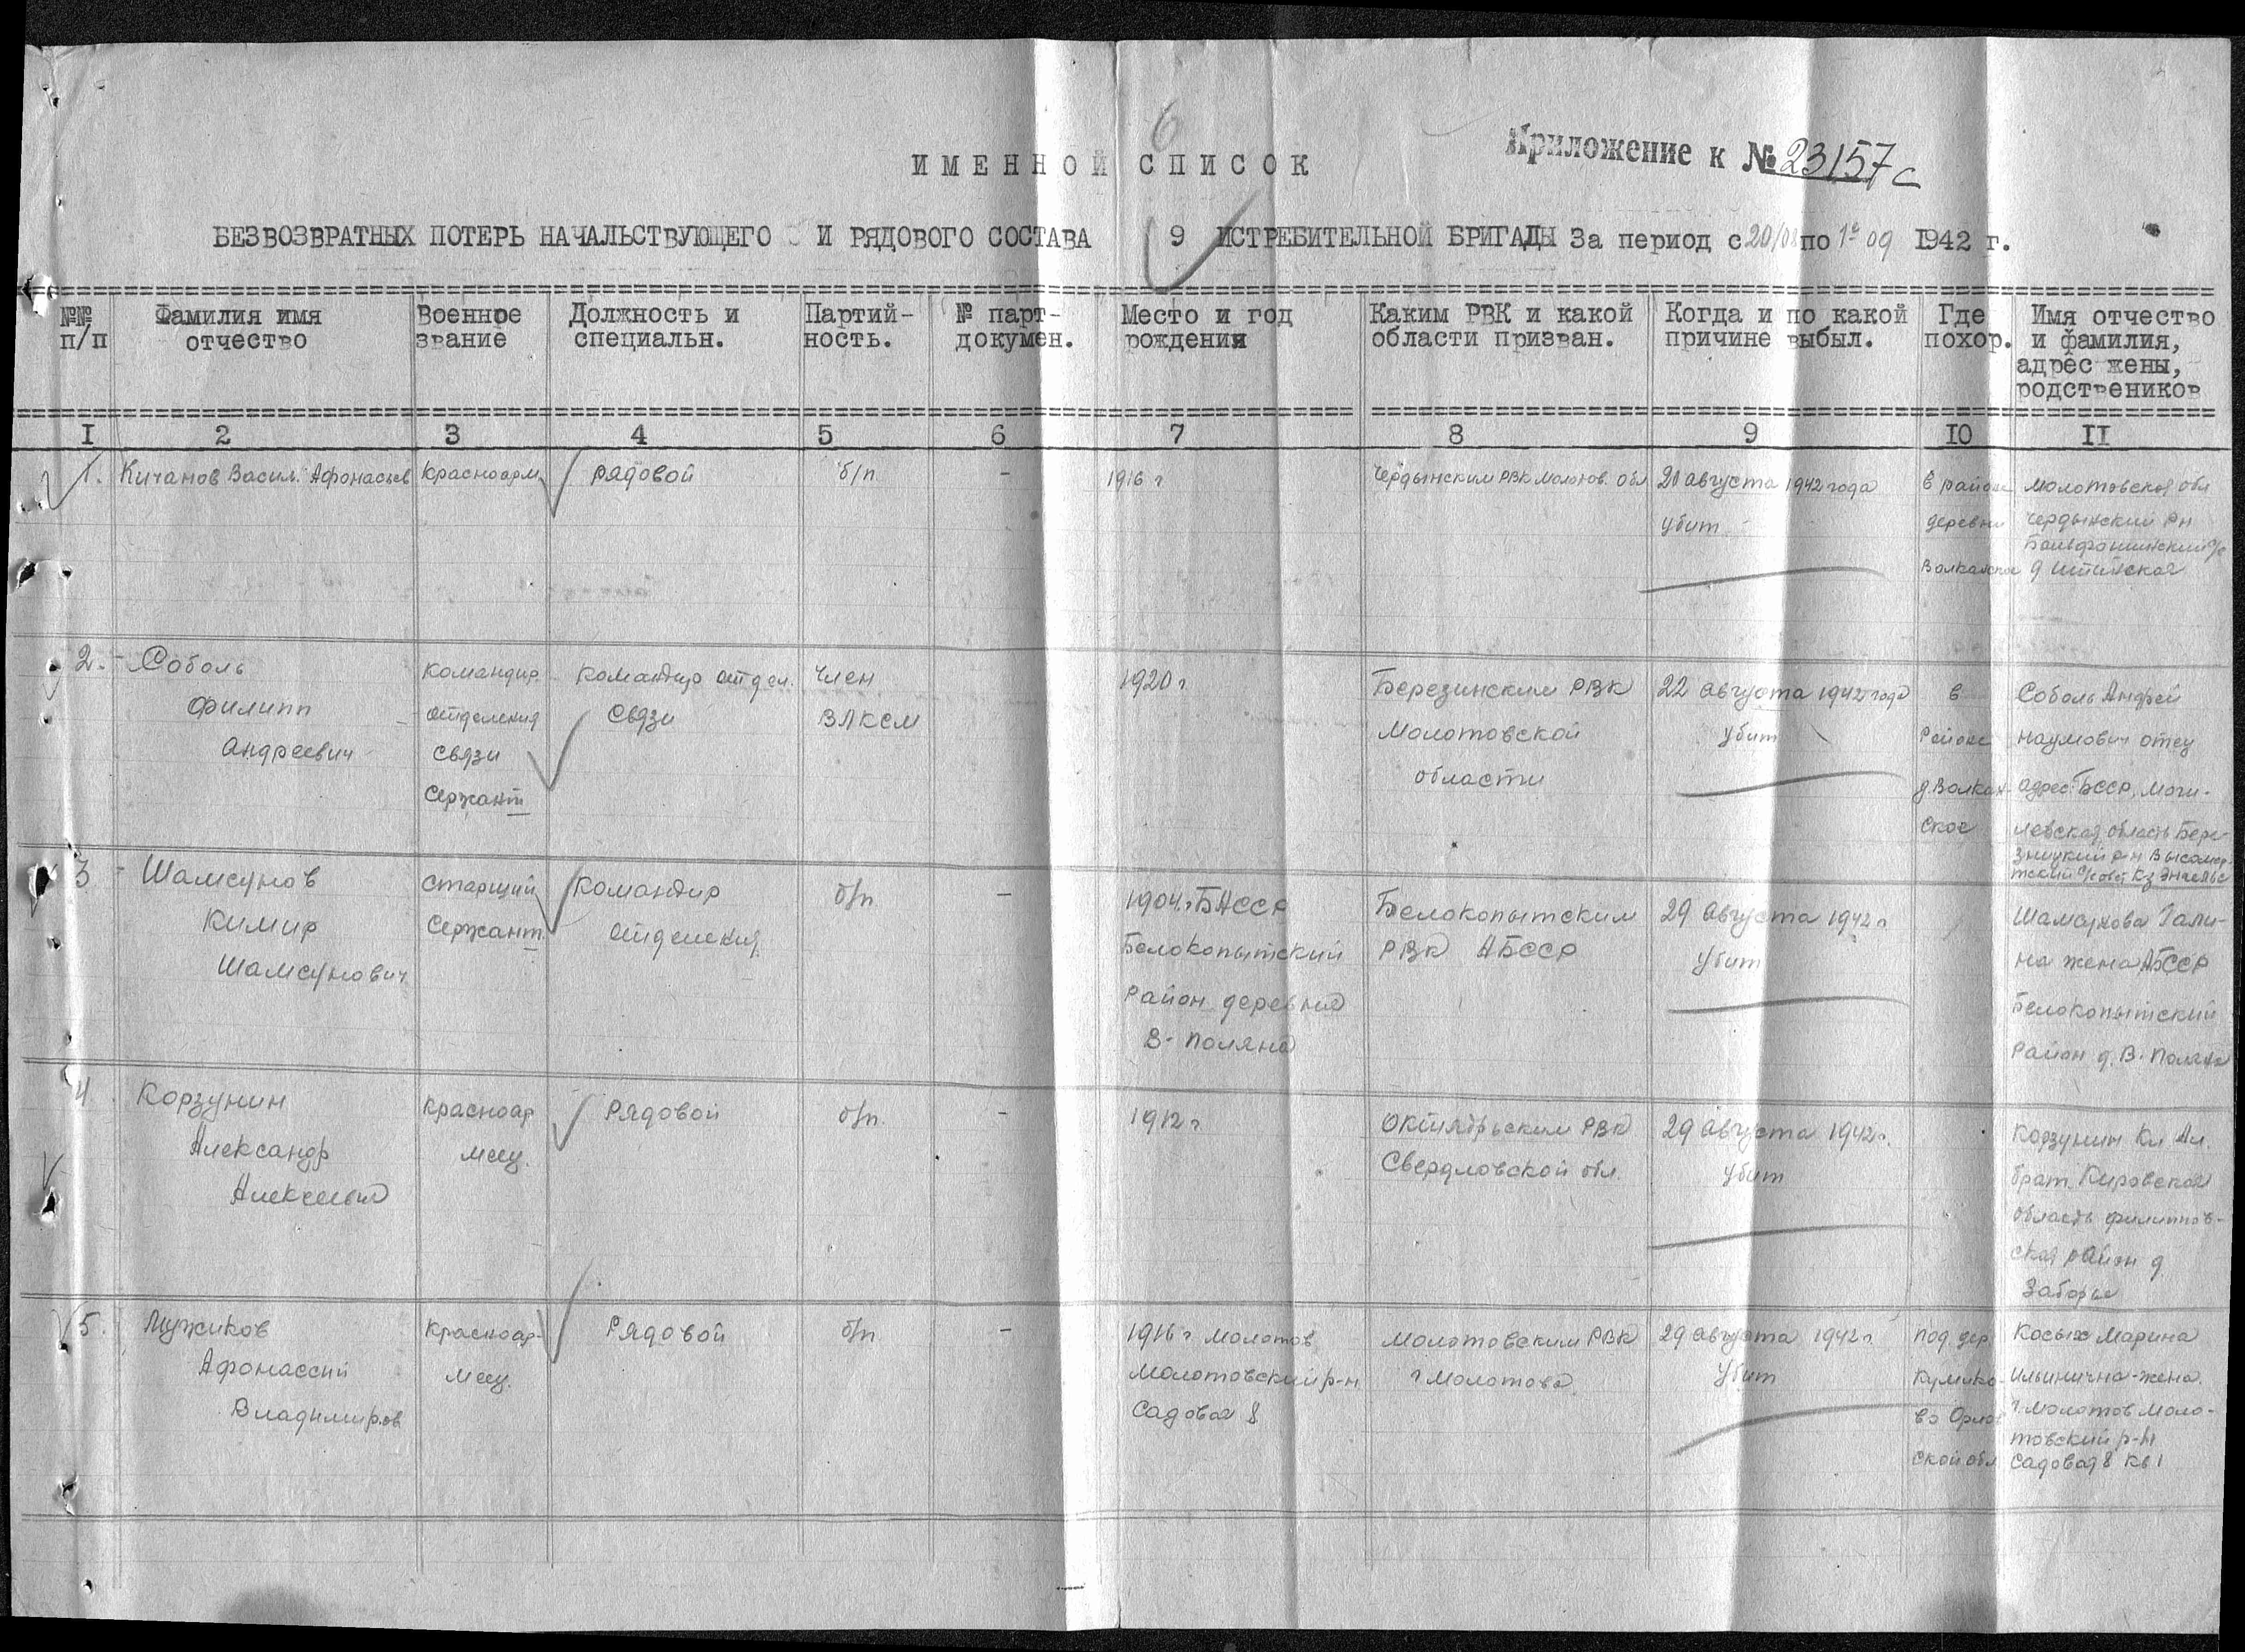 6
Приложение к № 23157с
ИМЕННОЙ СПИСОК
БЕЗВОЗВРАТНЫХ ПОТЕРЬ НАЧАЛЬСТВУЮЩЕГО И РЯДОВОГО СОСТАВА 9 ИСТРЕБИТЕЛЬНОЙ БРИГАДЫ За период с 20/08 по 1е 09 1942 г.
№№ п/п
Фамилия имя отчество
Военное звание
Должность и специальн.
Партий-ность.
№ парт-докумен.
Место и год рождения
Каким РВК и какой области призван.
Когда и по какой причине выбыл.
Где похор.
Имя отчество и фамилия, адрес жены, родствеников
I 2 3 4 5 6 7 8 9 10 II
1. Кичанов Васил. Афонасьев
Красноарм
рядовой
б/п
-
1916 г
Чердынским РВК Молотов. обл
21 августа 1942 года
убит
в районе
деревни
Молотовской обл
Чердынский рн
2. Соболь
Филипп
Андреевич
Командир
отделения
связи
Сержант
Командир отдел.
связи
Член
ВЛКСМ
1920 г
Березинским РВК
Молотовской
области
22 августа 1942 года
убит
в
Районе
д. Волкон-
ское
Соболь Андрей
Наумович отец
адрес БССР, Моги-
левская область Бере-
3 Шамсунов
Кимир
Шамсунович
Старший
Сержант.
Командир
отделения
б/п
-
1904 г БАССР
Белокопытский
Район деревня
В- Поляна
Белокопытским
РВК АБССР
29 августа 1942 г
убит
Шамсунова Гали-
на жена АБССР
Белокопытский
Район д. В. Поляна
4 Корзунин
Александр
Красноар
меец.
Рядовой
б/п.
-
1912 г
Октябрьским РВК
Свердловской обл.
29 августа 1942 г.
убит
Корзунин Кл Ал.
брат. Кировская
область Филиппов-
ская район д
Заборье
5. Мужиков
Афонассий
Владимиров
Красноар-
меец.
Рядовой
б/п
-
1916 г Молотов
Молотовский р-н
Садовая 8
Молотовским РВК
г Молотова
29 августа 1942 г
убит
под. дер
Кумико-
во Орлов
ской обл
Косых Марина
Ильинична-жена.
г. Молотов Моло-
товский р-н
Садовая 8 кв 1